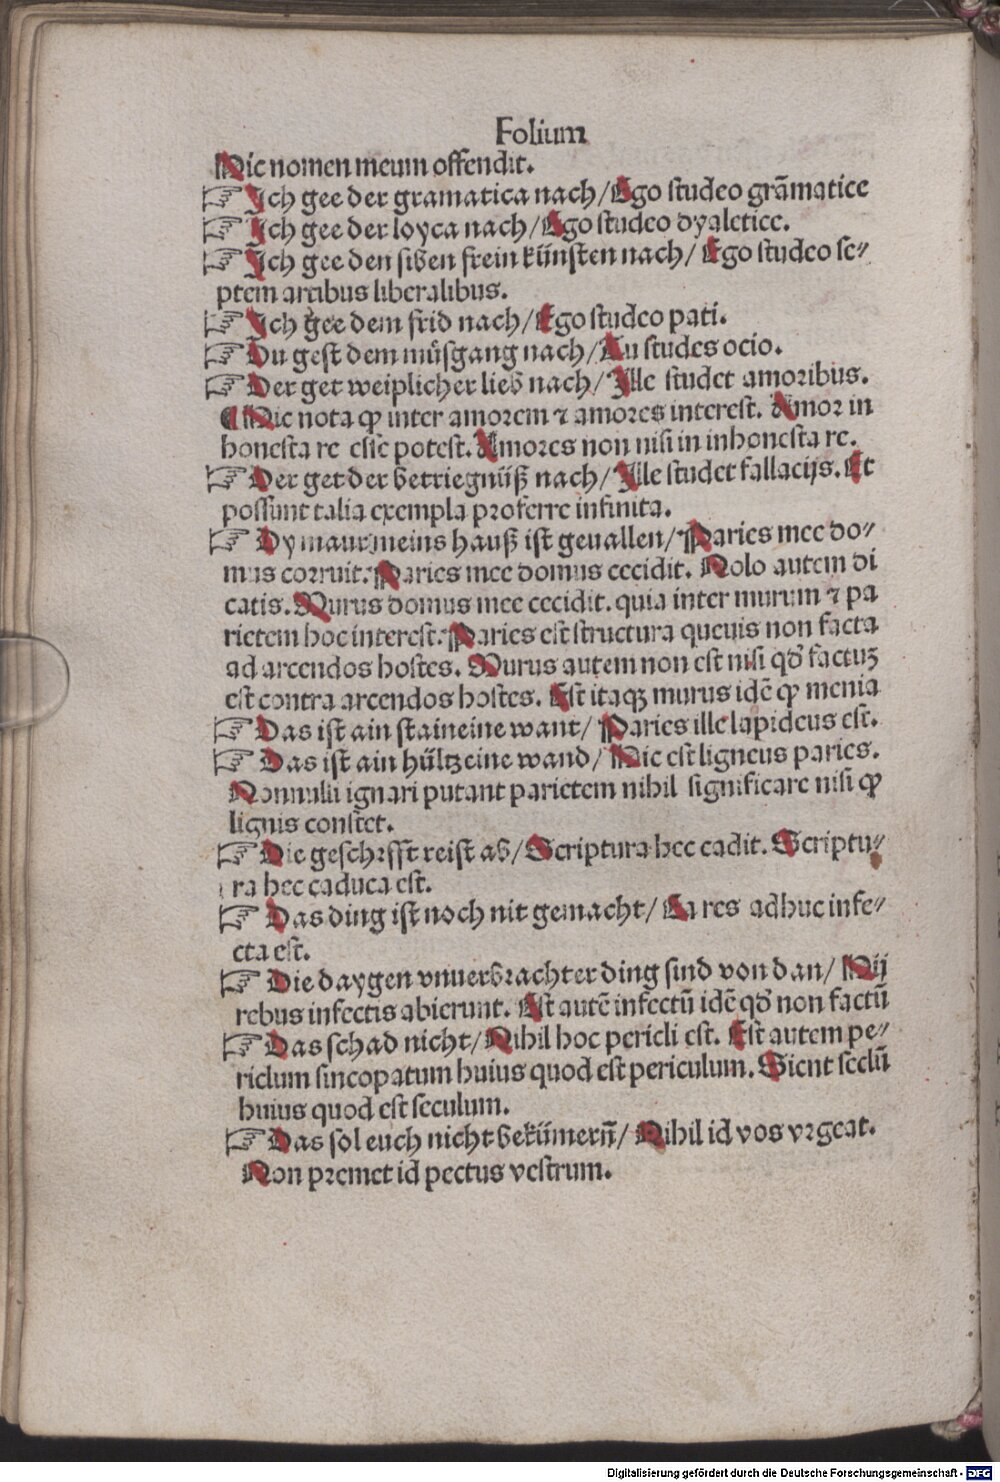 Folium
Hic nomen meum offendit.
☞ Ich gee der gramatica nach/ Ego studeo grãmatice
☞ Ich gee der loyca nach/ Ego studeo dyaletice.
☞ Ich gee den siben frein künsten nach/ Ego studeo se⸗
ptem artibus liberalibus.
☞ Ich gee dem frid nach/ Ego studeo pati.
☞ Du gest dem müsgang nach/ Tu studes ocio.
☞ Der get weiplicher lieb nach/ Ille studet amoribus.
¶ Hic nota ꝙ inter amorem ⁊ amores interest. Amor in
honesta re esse potest. Amores non nisi in inhonesta re.
☞ Der get der betriegnüß nach/ Ille studet fallacijs. Et
possunt talia exempla proferre infinita.
☞ Dy maur meins hauß ist geuallen/ Paries mee do⸗
mus corruit. Paries mee domus cecidit. Nolo autem di
catis. Murus domus mee cecidit. quia inter murum ⁊ pa
rietem hoc interest. Paries est structura queuis non facta
ad arcendos hostes. Murus autem non est nisi qđ factuꝫ
est contra arcendos hostes. Est itaqꝫ murus idẽ ꝙ menia
☞ Das ist ain staineine want/ Paries ille lapideus est.
☞ Das ist ain hültzeine wand/ Hic est ligneus paries.
Nonnulli ignari putant parietem nihil significare nisi ꝙ
lignis constet.
☞ Die geschrifft reist ab/ Scriptura hec cadit. Scriptu⸗
ra hec caduca est.
☞ Das ding ist noch nit gemacht/ Ea res adhuc infe⸗
cta est.
☞ Die daygen vnuerbrachter ding sind von dan/ Hij
rebus infectis abierunt. Est autẽ infectũ idẽ qđ non factũ
☞ Das schad nicht/ Nihil hoc pericli est. Est autem pe⸗
riclum sincopatum huius quod est periculum. Sicut seclũ
huius quod est seculum.
☞ Das sol euch nicht bekümern̄/ Nihil id vos vrgeat.
Non premet id pectus vestrum.
Digitalisierung gefördert durch die Deutsche Forschungsgemeinschaft - DFG